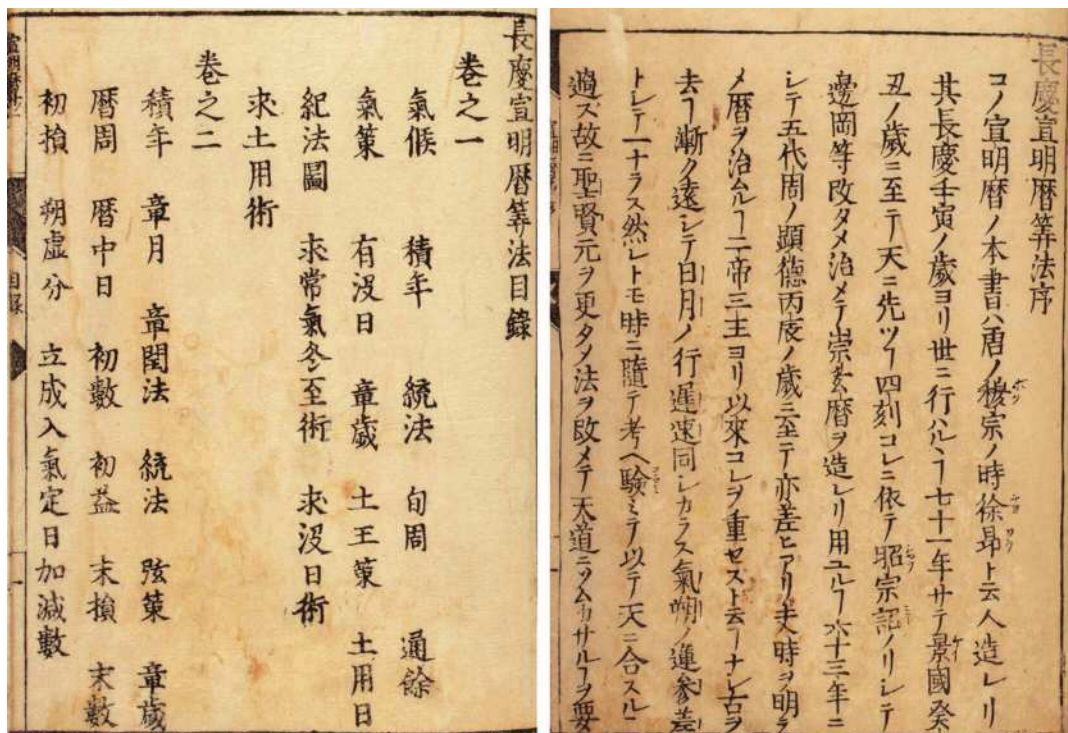 長慶宣明暦筭法序
コノ宣明暦ノ本書ハ唐ノ穆宗ノ時徐昻ト云人造レリ
其長慶壬寅ノ歳ヨリ世ニ行ハルヿ七十一年サテ景國癸
丑ノ歳ニ至テ天ニ先ツヿ四刻コレニ依テ昭宗記ノリシテ
邊岡等改タメ治メテ崇玄暦ヲ造レリ用ユルヿ六十三年ニ
シテ五代周ノ顕德丙辰ノ歳ニ至テ亦差ヒアリ夫時ヲ明ラ
メ暦ヲ治ムルヿ二帝三王ヨリ以來コレヲ重セスト云ヿナシ古ヲ
去ヿ漸ク遠シテ日月ノ行遲速同シカラス氣朔ノ運参差
トシテ一ナラス然レトモ時ニ隨テ考ヘ驗ミテ以テ天ニ合スルニ
過ズ故ニ聖賢元ヲ更タメ法ヲ改メテ天道ニソムカサルヿヲ要
長慶宣明暦筭法目錄
卷之一
氣候 積年 統法 旬周 通餘
氣策 有沒日 章歲 土王策 土用日
紀法圖 求常氣冬至術 求沒日術
求土用術
卷之二
積年 章月 章閏法 統法 弦策 章歲
暦周 暦中日 初數 初益 末損 末數
初損 朔虛分 立成入氣定日加減數
目錄
一